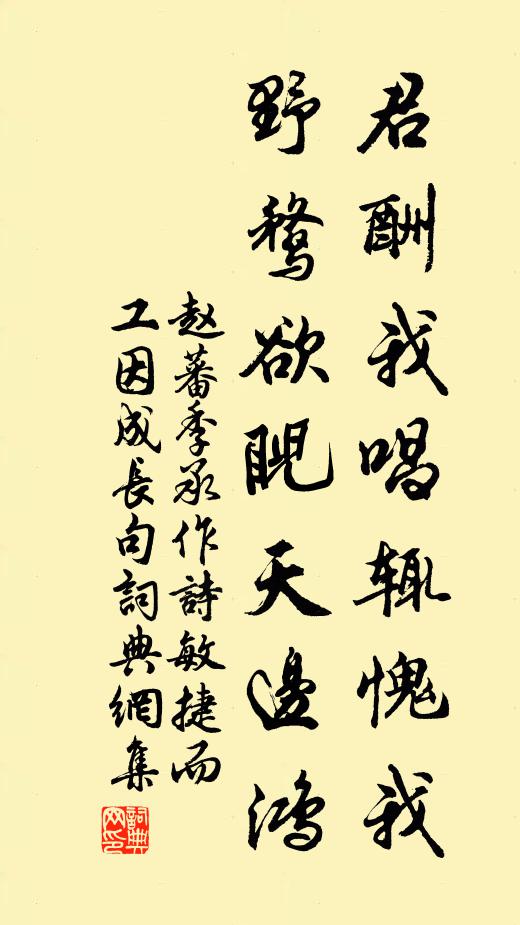 君酬我唱辄愧我
野鹜欲睨天邊鴻
赵蕃季承作詩敏捷而
工因成長句詞典網集
詞典
网印